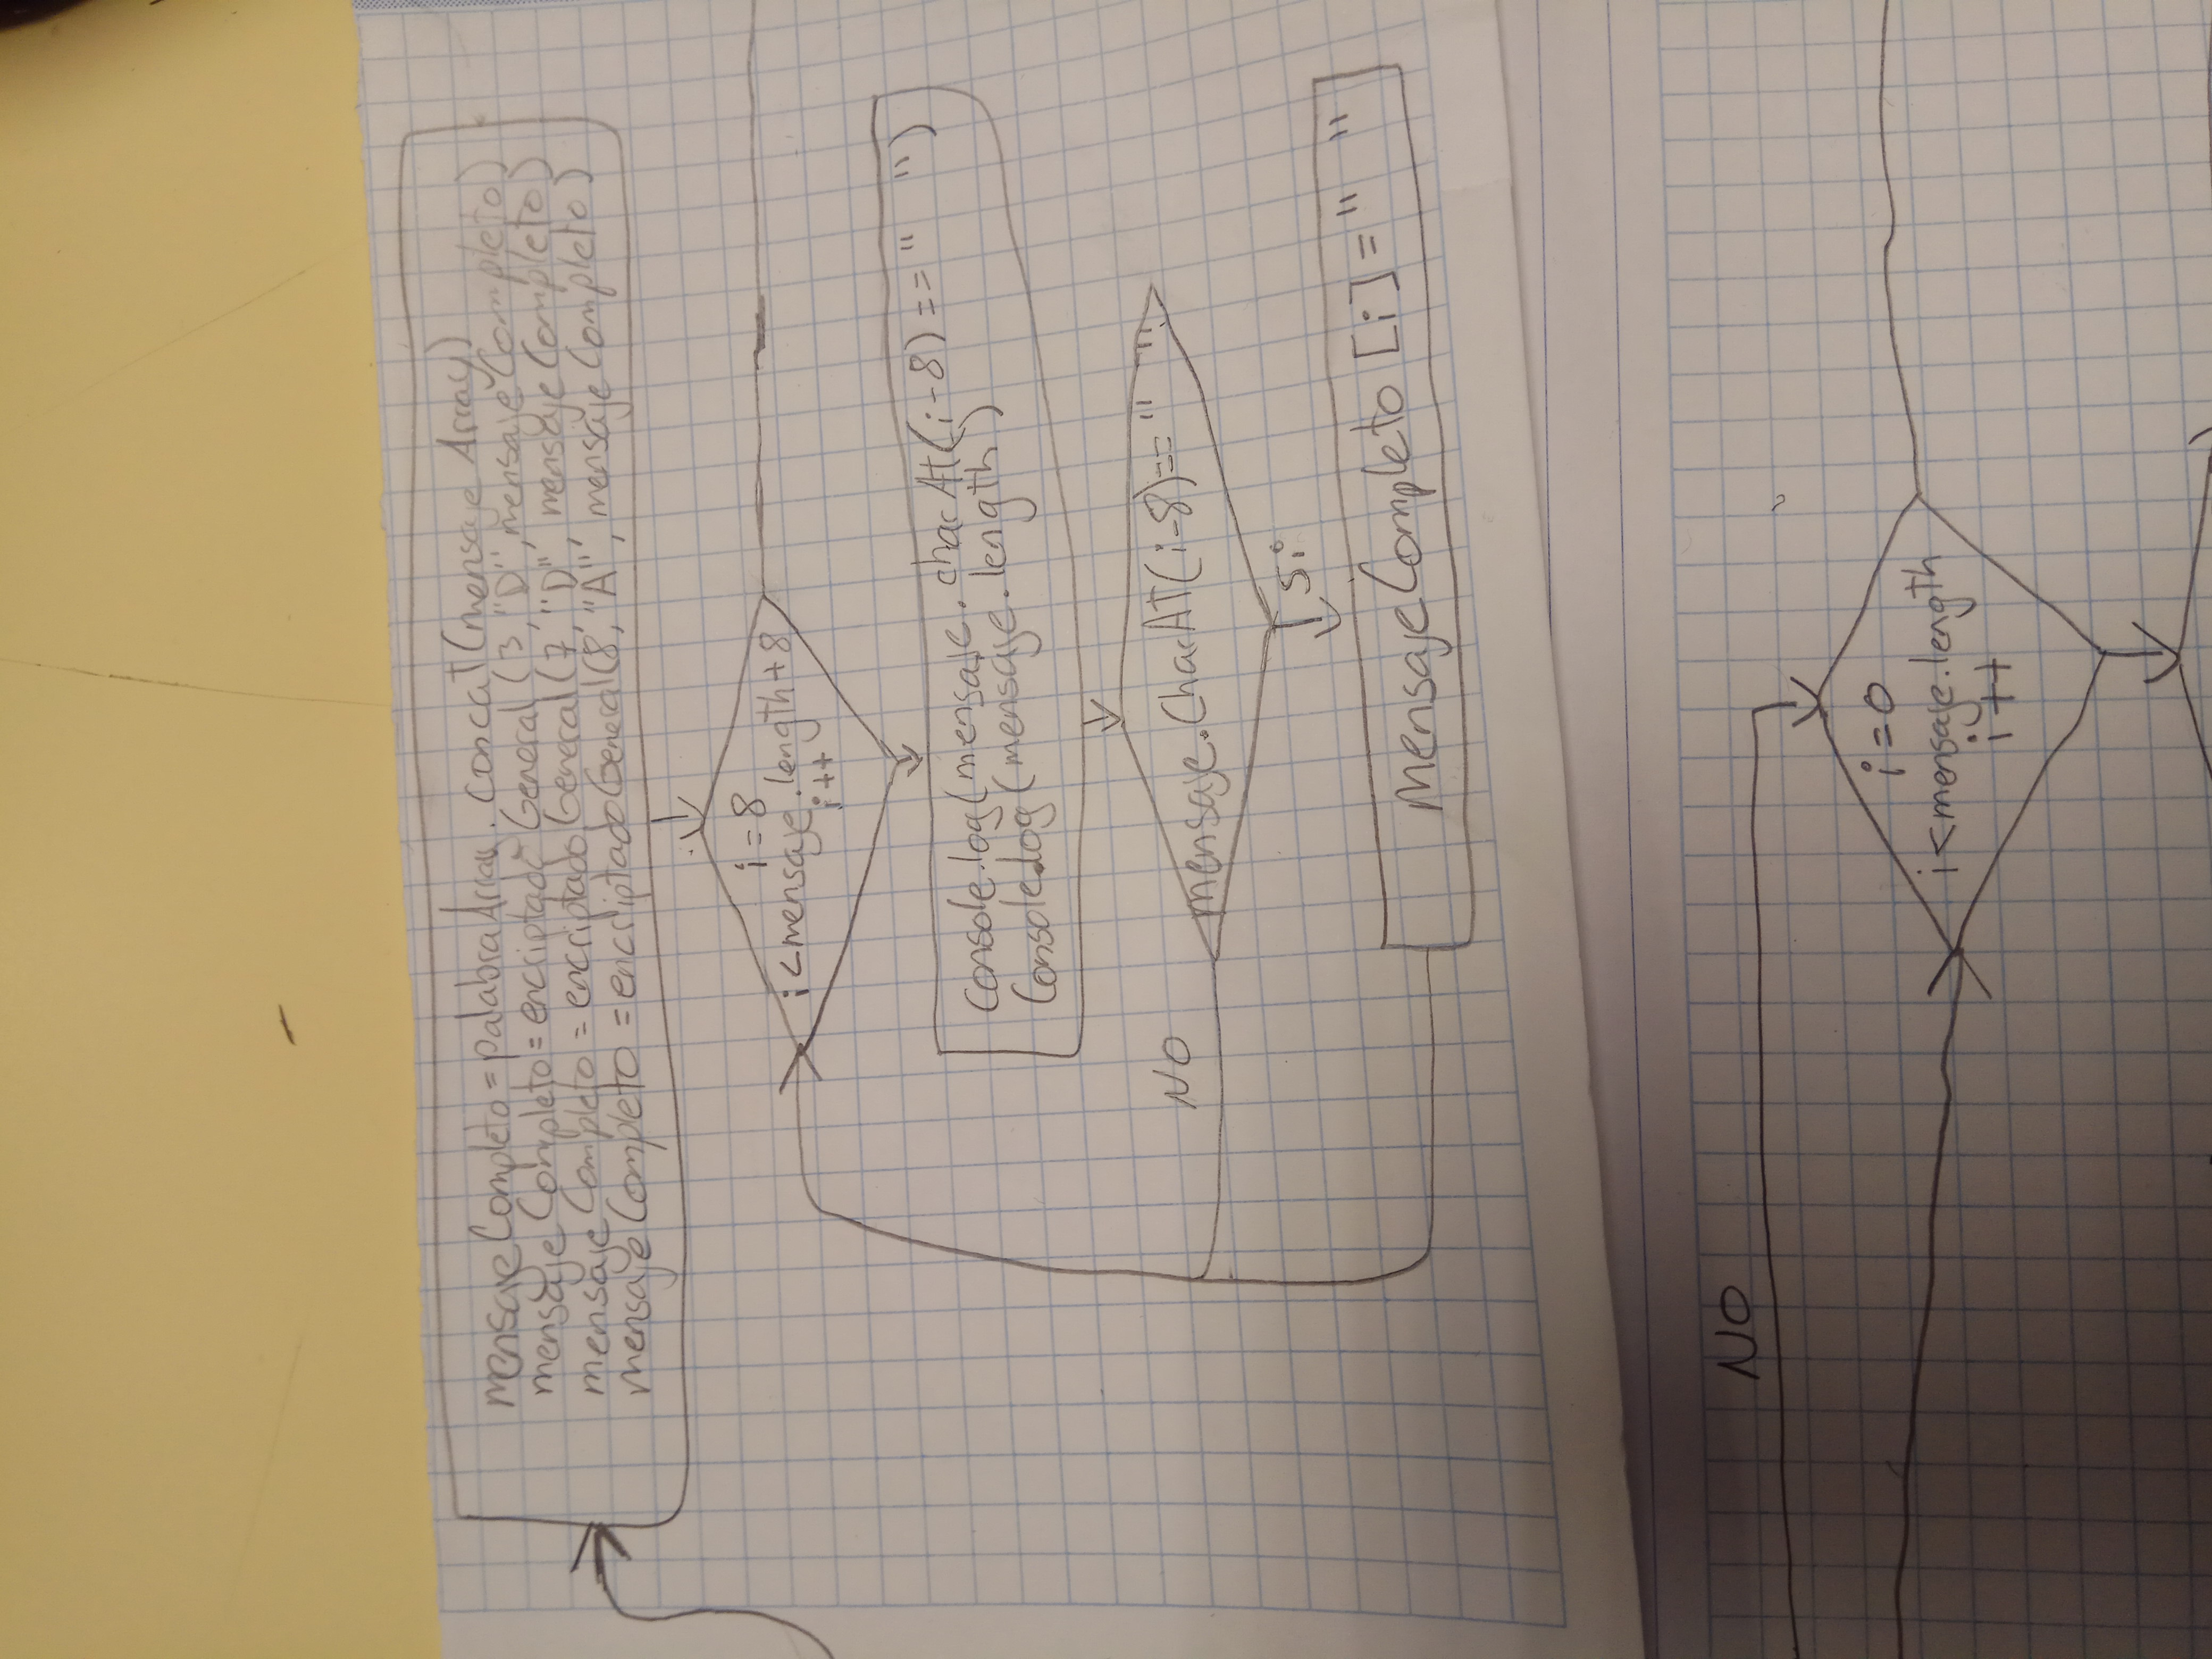 mensajeCompleto = palabraArray.concat(mensajeArray)
mensajeCompleto = encriptado General(3,"D",mensajeCompleto)
mensajeCompleto = encriptado General(7,"D", mensajeCompleto)
mensajeCompleto = encriptado General(8,"A", mensajeCompleto)
i=8
i<mensaje.length+8
i++
Console.log(mensaje.charAt(i-8)==" ")
Console.log(mensaje.length)
mensaje.CharAT(i-8)==" "
NO
Si
mensajeCompleto [i]=" "
NO
i=0
i<mensaje.length
i++